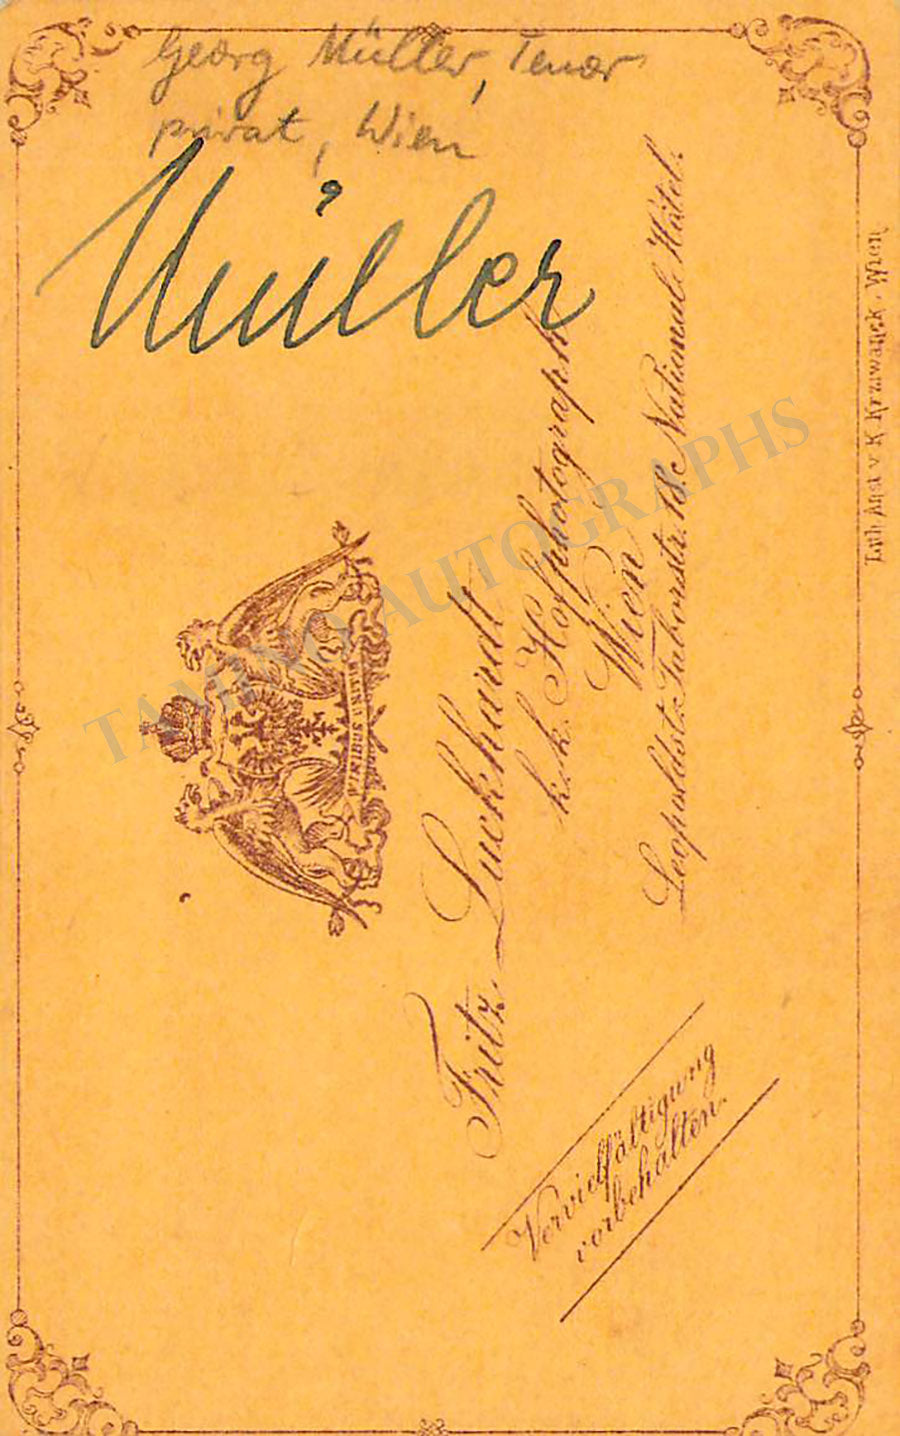 Georg Müller, Tenor
privat, Wien
Müller
VIRIBUS UNITIS
Fritz Luckhardt
k.k. Hofphotograph
Wien
Leopoldst. Taborstr. 18. National Hôtel.
Vervielfältigung
vorbehalten.
Lith Anst v. K. Krziwanek, Wien
TAMINO AUTOGRAPHS